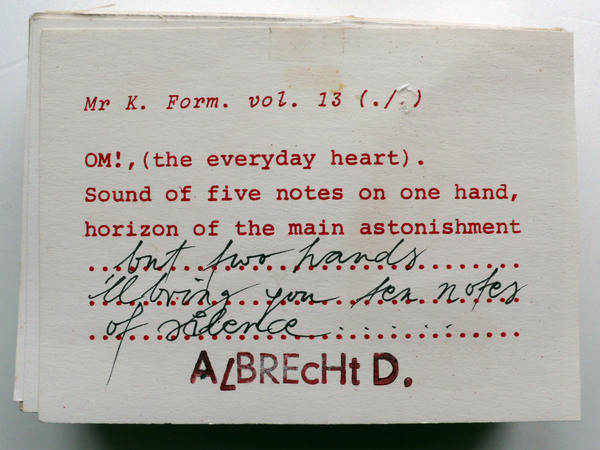 Mr K. Form. vol. 13 (./.)
OM!,(the everyday heart).
Sound of five notes on one hand,
horizon of the main astonishment
...but two hands.......
'll bring you ten notes
of silence..............
ALBREcHt D.